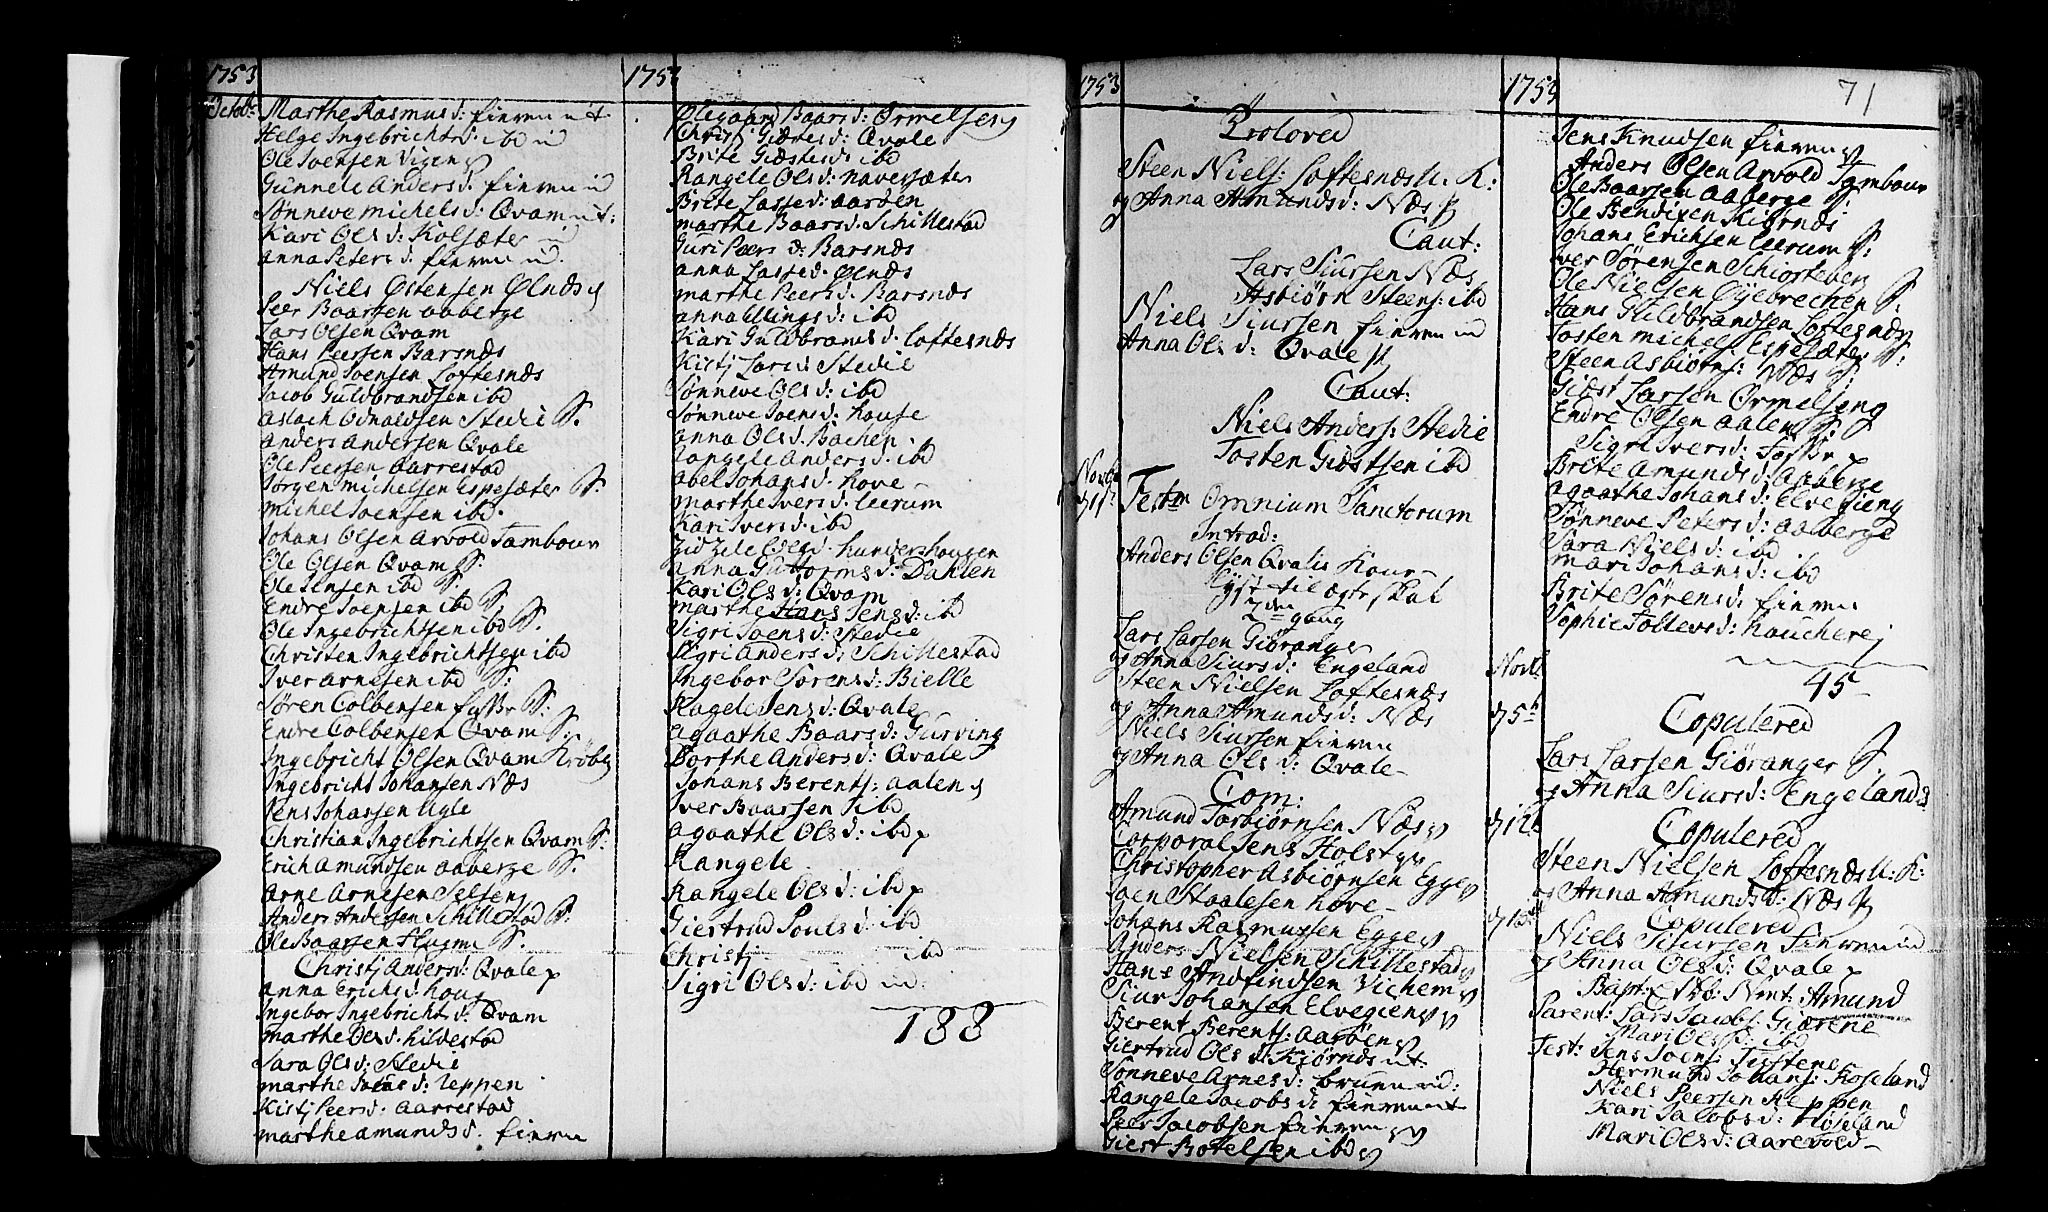 1753
Octob:
Marthe Rasmusd: finven ut
Helge Ingebrichtsd: ibd id
Ole Joensen Vigen
Gunnele Andersd: finven id
Sønneve Michelsd: Qvam ut:
Kari Olsd: Kolsæter id
Anna Petersd: finven id.
Niels Østensen Ølnæs
Peer Baarsen Aaberge
Lars Olsen Qvam
Hans Peersen Barsnæs
Amund Joensen Loftesnæs
Jacob Guldbrandsen ibd
Aslach Odnaldsen Stedie S:
Anders Andersen Qvale
Ole Peersen Aarrestad
Jørgen Michelsen Espesæter S:
Michel Joensen ibd.
Johans Olsen Arvold Tambour
Ole Olsen Qvam S:
Ole Jensen ibd S:
Endre Joensen ibd S:
Ole Ingebrichtsen ibd S:
Christen Ingebrichtsen ibd
Iver Arnesen ibd S:
Søren Colbensen S:
Endre Colbensen Qvam S:
Ingebricht Olsen Qvam
Ingebricht Johansen Næs
Jens Johansen Ugle
Christian Ingebrichtsen Qvam S:
Erich Amundsen Aaberge S:
Arne Arnesen Selseng
Anders Andersen Schillestad S:
Ole Baarsen Hugrne S.
Christj Andersd: Qvale
Anna Erichsd: houg
Ingebor Ingebrichtsd: Qvam
Marthe Olsd: hildestad
Sara Olsd: Stedie
Marthe Joensd: Reppen
Kistj Peersd: Aarrestad
Marthe Amundsd. finven
1753
Olegaard Baarsd: Ormelseng
Christj Giæstesd: Qvale
Brite Giæstesd: ibd
Rangele Olsd: Naversæter
Brite Lassed: Aarøen
Marthe Baarsd. Schillestad
Guri Peersd: Barsnæs
Anna Lassed. Ølnæs
Marthe Peersd. Barsnæs
Anna Ellingsd: ibd
Kari Guldbransd: Loftesnæs
Kistj Larsd: Stedie
Sønneve Olsd: ibd
Sønneve Joensd: house
Anna Olsd: Bachen.
Rangele Andersd. ibd
Abel Johansd. hove
Marthe Iversd: Leerum
Kari Iversd: ibd
Zidzele Olsd. hundershougen
Anna Guttormsd: Dahlen
Kari Olsd: Qvam
Marthe Hans Jensd: ibd
Sigri Joensd: Stedie
Sigri Andersd: Schillestad
Ingebor Sørensd: Bielle
Ragele Jensd: Qvale
Agaathe Baarsd: Gurving
Dorthe Andersd: Qvale
Johans Berents: Aalen
Iver Baarsen ibd
Agaathe Olsd: ibd
Rangele
Rangele Olsd: ibd
Giertrud Poulsd: ibd
Christj ibd
Sigri Olsd: ibd id.
188
1753
Troloved
Steen Niels: Loftesnæs U. K:
og Anna Amundsd: Næs
Caut:
Lars Siursen Næs
Asbiørn Steens: ibd
Niels Siursen finven id
Anna Olsd: Qvale
Caut:
Niels Anders: Stedie
Tosten Giæstsen ibd
Novb:
Festm Omnium Sanctorum
Introd:
Anders Olsen Qvalis Kone
Lyst til ægteskab
2den gang
Lars Larsen Giøranger
og Anna Siursd: Engeland
Steen Nielsen Loftesnæs
og Anna Amundsd: Næs
Niels Siursen finven
og Anna Olsd: Qvale
Com:
Amund Torbiørnsen Næs
Corporal Jens Holst
Christopher Asbiørnsen Egge
Joen Staalesen hove
Johans Rasmussen Egge
Anders Nielsen Schillestad
Hans Andfindsen Vichem
Siur Johansen Elvegien
Berent Berents: Aarøen
Giertrud Olsd: Kiørnæs ut.
Sønneve Arnesd: bruun id:
Rangele Jacobsd: finven ut
Peer Jacobsen finven
Giest Botelsen ibd
1753
71
Jens Knudsen finven
Anders Olsen Arvold Tambour
Ole Baarsen Aaberge S:
Ole Bendixen Kiørnæs
Johans Erichsen Leerum S:
Iver Sørensen Schiorteberg
Ole Nielsen Øyebrechen S:
Hans Guldbrandsen Loftesnæs
Tosten Michels: Espesæter S:
Steen Asbiørns: Næs S:
Giæst Larsen Ormelseng
Endre Olsen Aalen S:
Sigri Iversd:
Brite Amundsd: Aaberge
Agaathe Johansd: Elvegieng
Sønneve Petersd: Aaberge
Sara Nielsd: ibd
Mari Johansd: ibd
Brite Sørensd: finven
Sophie Tollevsd:
45
Novb
d 5te
Copulered
Lars Larsen Giøranger S.
og Anna Siursd: Engeland
d 12
Copulered
Steen Nielsen Loftesnæs U: K:
og Anna Amundsd: Næs
d 15
Copulered
Niels Siursen Finven id
og Anna Olsd: Qvale
Bapt: Nom: Amund
Parent: Lars Jacobs: Giærene
Mari Olsd: ibd
Test: Jens Joens: Testene
Hermund Johans: Roseland
Niels Peersen Reppen
Kari Jacobsd: Røseland
Mari Olsd: Aarevold